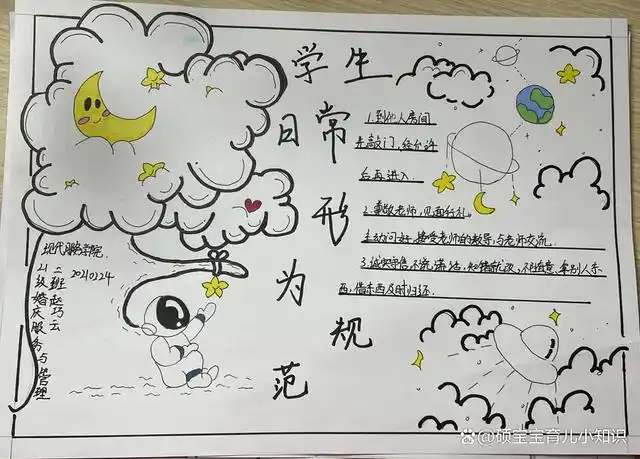 学生
日常
形
为
规
范
1.到他人房间
先敲门,经允许
后再进入.
2.尊敬老师,见面行礼,
主动问好,接受老师的教导,与老师交流.
3.诚实守信不说谎话,知错就改,不随意拿别人东
西,借东西及时归还.
现代服务学院
21级婚庆服务与管理
二班赵巧云
20210224
@硕宝宝育儿小知识